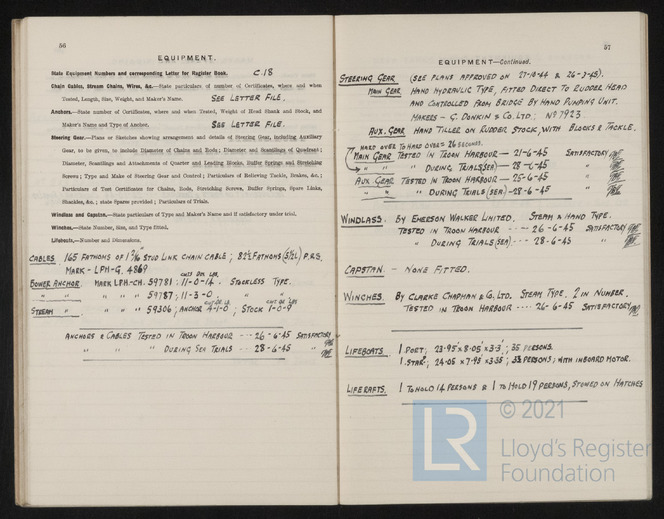 56
EQUIPMENT.
State Equipment Numbers and corresponding Letter for Register Book. C.18
Chain Cables, Stream Chains, Wires, &c.—State particulars of number of Certificates, where and when
Tested, Length, Size, Weight, and Maker's Name. SEE LETTER FILE.
Anchors.—State number of Certificates, where and when Tested, Weight of Head Shank and Stock, and
Maker's Name and Type of Anchor. SEE LETTER FILE.
Steering Gear.—Plans or Sketches showing arrangement and details of Steering Gear, including Auxiliary
Gear, to be given, to include Diameter of Chains and Rods; Diameter and Scantlings of Quadrant;
Diameter, Scantlings and Attachments of Quarter and Leading Blocks, Buffer Springs and Stretching
Screws; Type and Make of Steering Gear and Control; Particulars of Relieving Tackle, Brakes, &c.;
Particulars of Test Certificates for Chains, Rods, Stretching Screws, Buffer Springs, Spare Links,
Shackles, &c.; state Spares provided; Particulars of Trials.
Windlass and Capstan.—State particulars of Type and Maker's Name and if satisfactory under trial.
Winches.—State Number, Size, and Type fitted.
Lifeboats.—Number and Dimensions.
CABLES 165 FATHOMS OF 1 9/16 STUD LINK CHAIN CABLE; 82½ FATHOMS (S/L) P.R.S.
MARK - LPH-G. 4869
BOWER ANCHOR MARK LPH-CH. 59781: 11-0-14. STOCKLESS TYPE.
" " " " " 59787: 11-3-0. " "
STREAM " " " " 59306; ANCHOR 4-1-0; STOCK 1-0-9
ANCHORS & CABLES TESTED IN TROON HARBOUR --- 26-6-45 SATISFACTORY
" " " DURING SEA TRIALS --- 28-6-45 "
57
EQUIPMENT—Continued.
STEERING GEAR (SEE PLANS APPROVED ON 27-10-44 & 26-3-45).
MAIN GEAR HAND HYDRAULIC TYPE, FITTED DIRECT TO RUDDER HEAD
AND CONTROLLED FROM BRIDGE BY HAND PUMPING UNIT.
MAKERS - G. DONKIN & CO. LTD; No 7923.
AUX. GEAR HAND TILLER ON RUDDER STOCK, WITH BLOCKS & TACKLE.
HARD OVER TO HARD OVER = 26 SECONDS.
MAIN GEAR TESTED IN TROON HARBOUR — 21-6-45 SATISFACTORY
" " " DURING TRIALS (SEA) — 28-6-45 "
AUX GEAR TESTED IN TROON HARBOUR — 25-6-45 "
" " " DURING TRIALS (SEA) - 28-6-45 "
WINDLASS. BY EMERSON WALKER LIMITED. STEAM & HAND TYPE.
TESTED IN TROON HARBOUR --- 26-6-45 SATISFACTORY
" DURING TRIALS (SEA) --- 28-6-45 "
CAPSTAN - NONE FITTED.
WINCHES. BY CLARKE CHAPMAN & CO. LTD. STEAM TYPE. 2 IN NUMBER.
TESTED IN TROON HARBOUR --- 26-6-45 SATISFACTORY
LIFEBOATS 1 PORT; 23.95 x 8.05 x 3.3; 35 PERSONS.
1 STARD; 24.05 x 7.95 x 3.35; 33 PERSONS; WITH INBOARD MOTOR.
LIFERAFTS. 1 TO HOLD 14 PERSONS & 1 TO HOLD 19 PERSONS, STOWED ON HATCHES
© 2021
LR
Lloyd's Register
Foundation